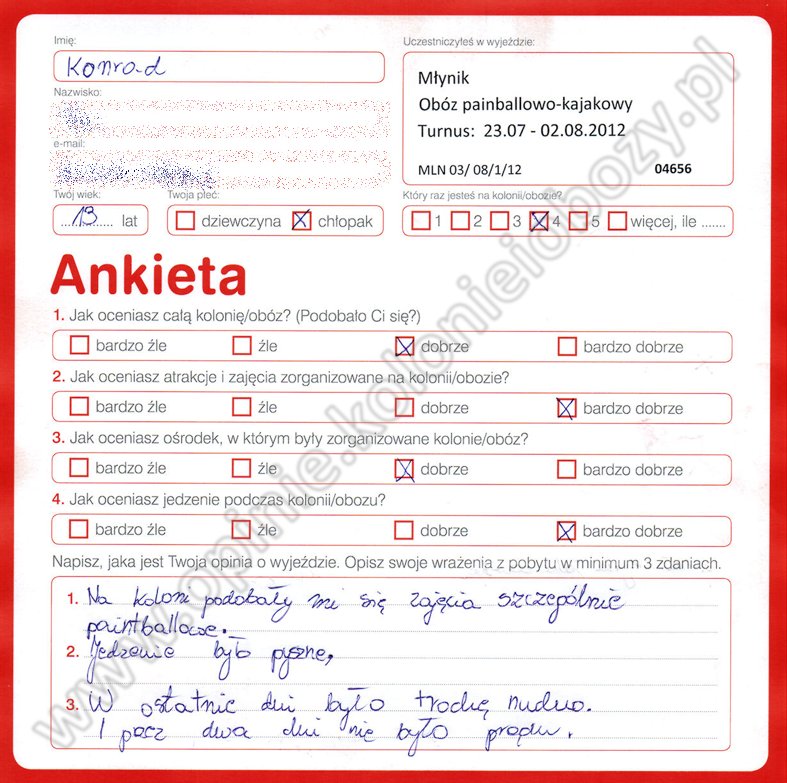 Imię:
Konrad
Nazwisko:
e-mail:
Uczestniczyłeś w wyjeździe:
Młynik
Obóz painballowo-kajakowy
Turnus: 23.07 - 02.08.2012
MLN 03/ 08/1/12 04656
Twój wiek: Twoja płeć: Który raz jesteś na kolonii/obozie?
....13..... lat dziewczyna chłopak 1 2 3 4 5 więcej, ile .......
Ankieta
1. Jak oceniasz całą kolonię/obóz? (Podobało Ci się?)
bardzo źle źle dobrze bardzo dobrze
2. Jak oceniasz atrakcje i zajęcia zorganizowane na kolonii/obozie?
bardzo źle źle dobrze bardzo dobrze
3. Jak oceniasz ośrodek, w którym były zorganizowane kolonie/obóz?
bardzo źle źle dobrze bardzo dobrze
4. Jak oceniasz jedzenie podczas kolonii/obozu?
bardzo źle źle dobrze bardzo dobrze
Napisz, jaka jest Twoja opinia o wyjeździe. Opisz swoje wrażenia z pobytu w minimum 3 zdaniach.
1. Na koloni podobały mi się zajęcia szczególnie
paintballowe.
2. Jedzenie było pyszne,
3. W ostatnie dni było trochę nudno.
I pocz dwa dni nie było prądu.
www.opinie.kolonieiobozy.pl